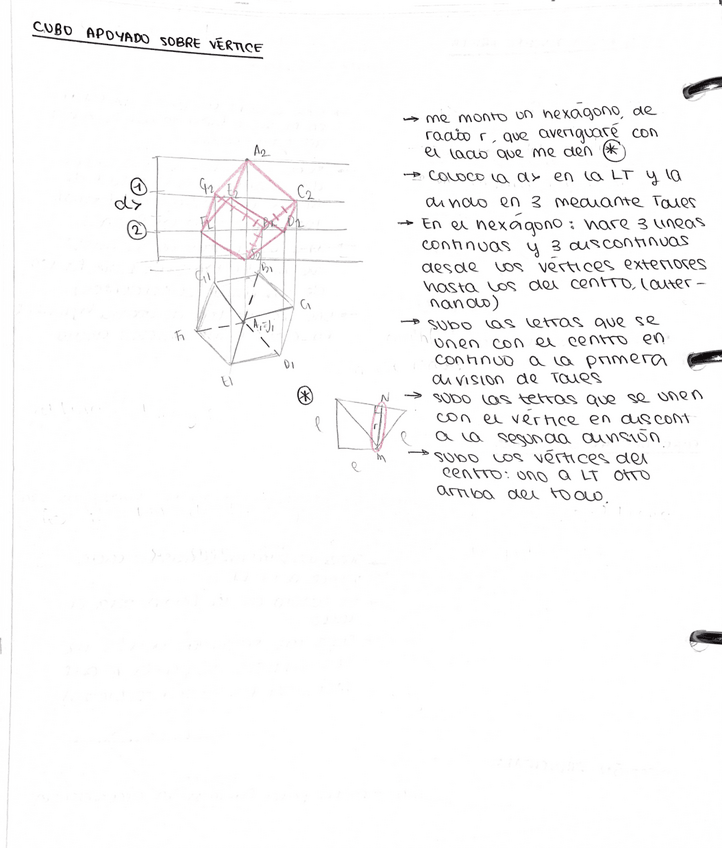 CUBO APOYADO SOBRE VÉRTICE
→ me monto un hexágono, de
radio r, que averiguaré con
el lado que me den *
→ coloco la dv en la LT y la
divido en 3 mediante Tales
→ En el hexágono: hare 3 líneas
continuas y 3 discontinuas
desde los vértices exteriores
hasta los del centro, (alter-
nando)
→ subo las letras que se
unen con el centro en
continuo a la primera
división de Tales
→ subo las letras que se unen
con el vértice en discont
a la segunda división.
→ subo los vértices del
centro: uno a LT otro
arriba del todo.
A2
1
G2 E2 C2
dv
2
D2
G1 B1
C1
A1=J1
F1
D1
E1
*
N
l r l
l M